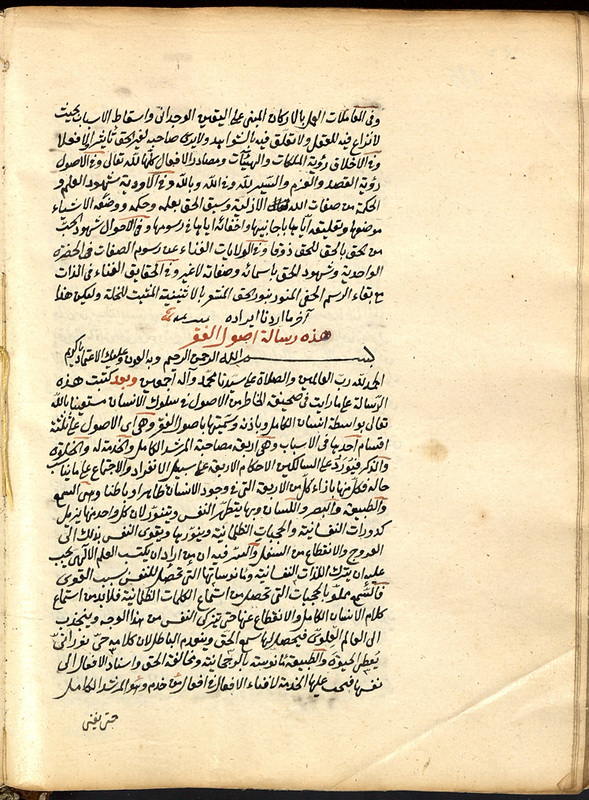 وفى المعاملات العمل بالاركان المبنى على اليقين الوجدانى واسقاط الاسباب بحيث
لا نزاع فيه للعقل ولا تعلق فيه بالشواهد ولا يرى صاحبه لغير الحق تأثيرا ولا فعلا
وفى الاخلاق رؤية الملكات والهيئات ومصادر الافعال كلها لله تعالى وفى الاصول
رؤية القصد والعزم والسير لله وفى الله وبالله وفى الاودية شهود العلم و
الحكمة من صفات الله الازلية وسبق الحق بعلمه وحكمه ووضعه الاشياء
موضعها وتعليقه اياها باحايينها واخفائه اياها فى رسومها وفى الاحوال شهود الحب
من الحق بالحق للحق ذوقا وفى الولايات الفناء عن رسوم الصفات فى الحضرة
الواحدية وشهود الحق باسمائه وصفاته لا غير وفى الحقايق الفناء فى الذات
مع بقاء الرسم الخفى المنور بنور الحق المشعر بالاثنينية المثبت للخلة وليكن هذا
آخر ما اردنا ايراده
هذه رسالة اصول الفقر
بسم الله الرحمن الرحيم وبه العون وعليك الاعتماد يا كريم
الحمد لله رب العالمين والصلاة على سيدنا محمد وآله اجمعين وبعد كتبت هذه
الرسالة على ما رايت فى صحيفة الخاطر من الاصول فى سلوك الانسان مستعينا بالله
تعالى بواسطة انسان الكامل وباذنه وسميتها باصول الفقر وهى اى الاصول على ثلثة
اقسام احدها فى الاسباب وهى اربعة مصاحبة المرشد الكامل والخدمة له والخلوة
والذكر فيورد على السالكين الاحكام الاربعة على سبيل الانفراد والاجتماع على ما يناسب
حاله فكل منها بازاء كل من الاربعة التى فى وجود الانسان ظاهرا وباطنا وهى السمع
والطبيعة والبصر واللسان وبها يتطهر النفس ويتنور لان كل واحد منها يزيل
كدورات النفسانية والحجبات الظلمانية وينورها ويقوى النفس بذلك الى
العروج والانقطاع من السفل والسر فيه ان من اراد ان يكتسب العلم الالهى يجب
عليه ان يترك اللذات النفسانية ومأنوساتها التى تحصل للنفس بسبب القوى
فالسمع مملو بالحجبات التى تحصل من استماع الكلمات الظلمانية فلا بد من استماع
كلام الانسان الكامل والانقطاع عنها حتى يتزكى النفس من هذا الوجه وينجذب
الى العالم العلوى فيحصل لها سمع الحق وينعدم الباطل لان كلامه حى نورانى
يعطى الحيوة والطبيعة مأنوسة بالرجحانية ومخالفة الحق واسناد الافعال الى
نفسها فيجب عليها الخدمة لافناء الافعال فى افعال من خدم وهو المرشد الكامل
حتى يفنى